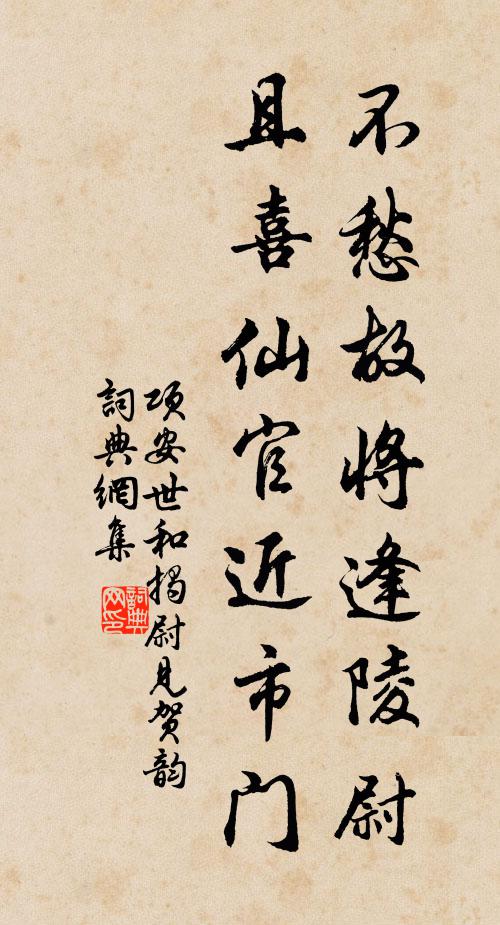 不愁故將逢陵尉
且喜仙官近市门
项安世和揭尉見贺韵
詞典網集
詞典网印